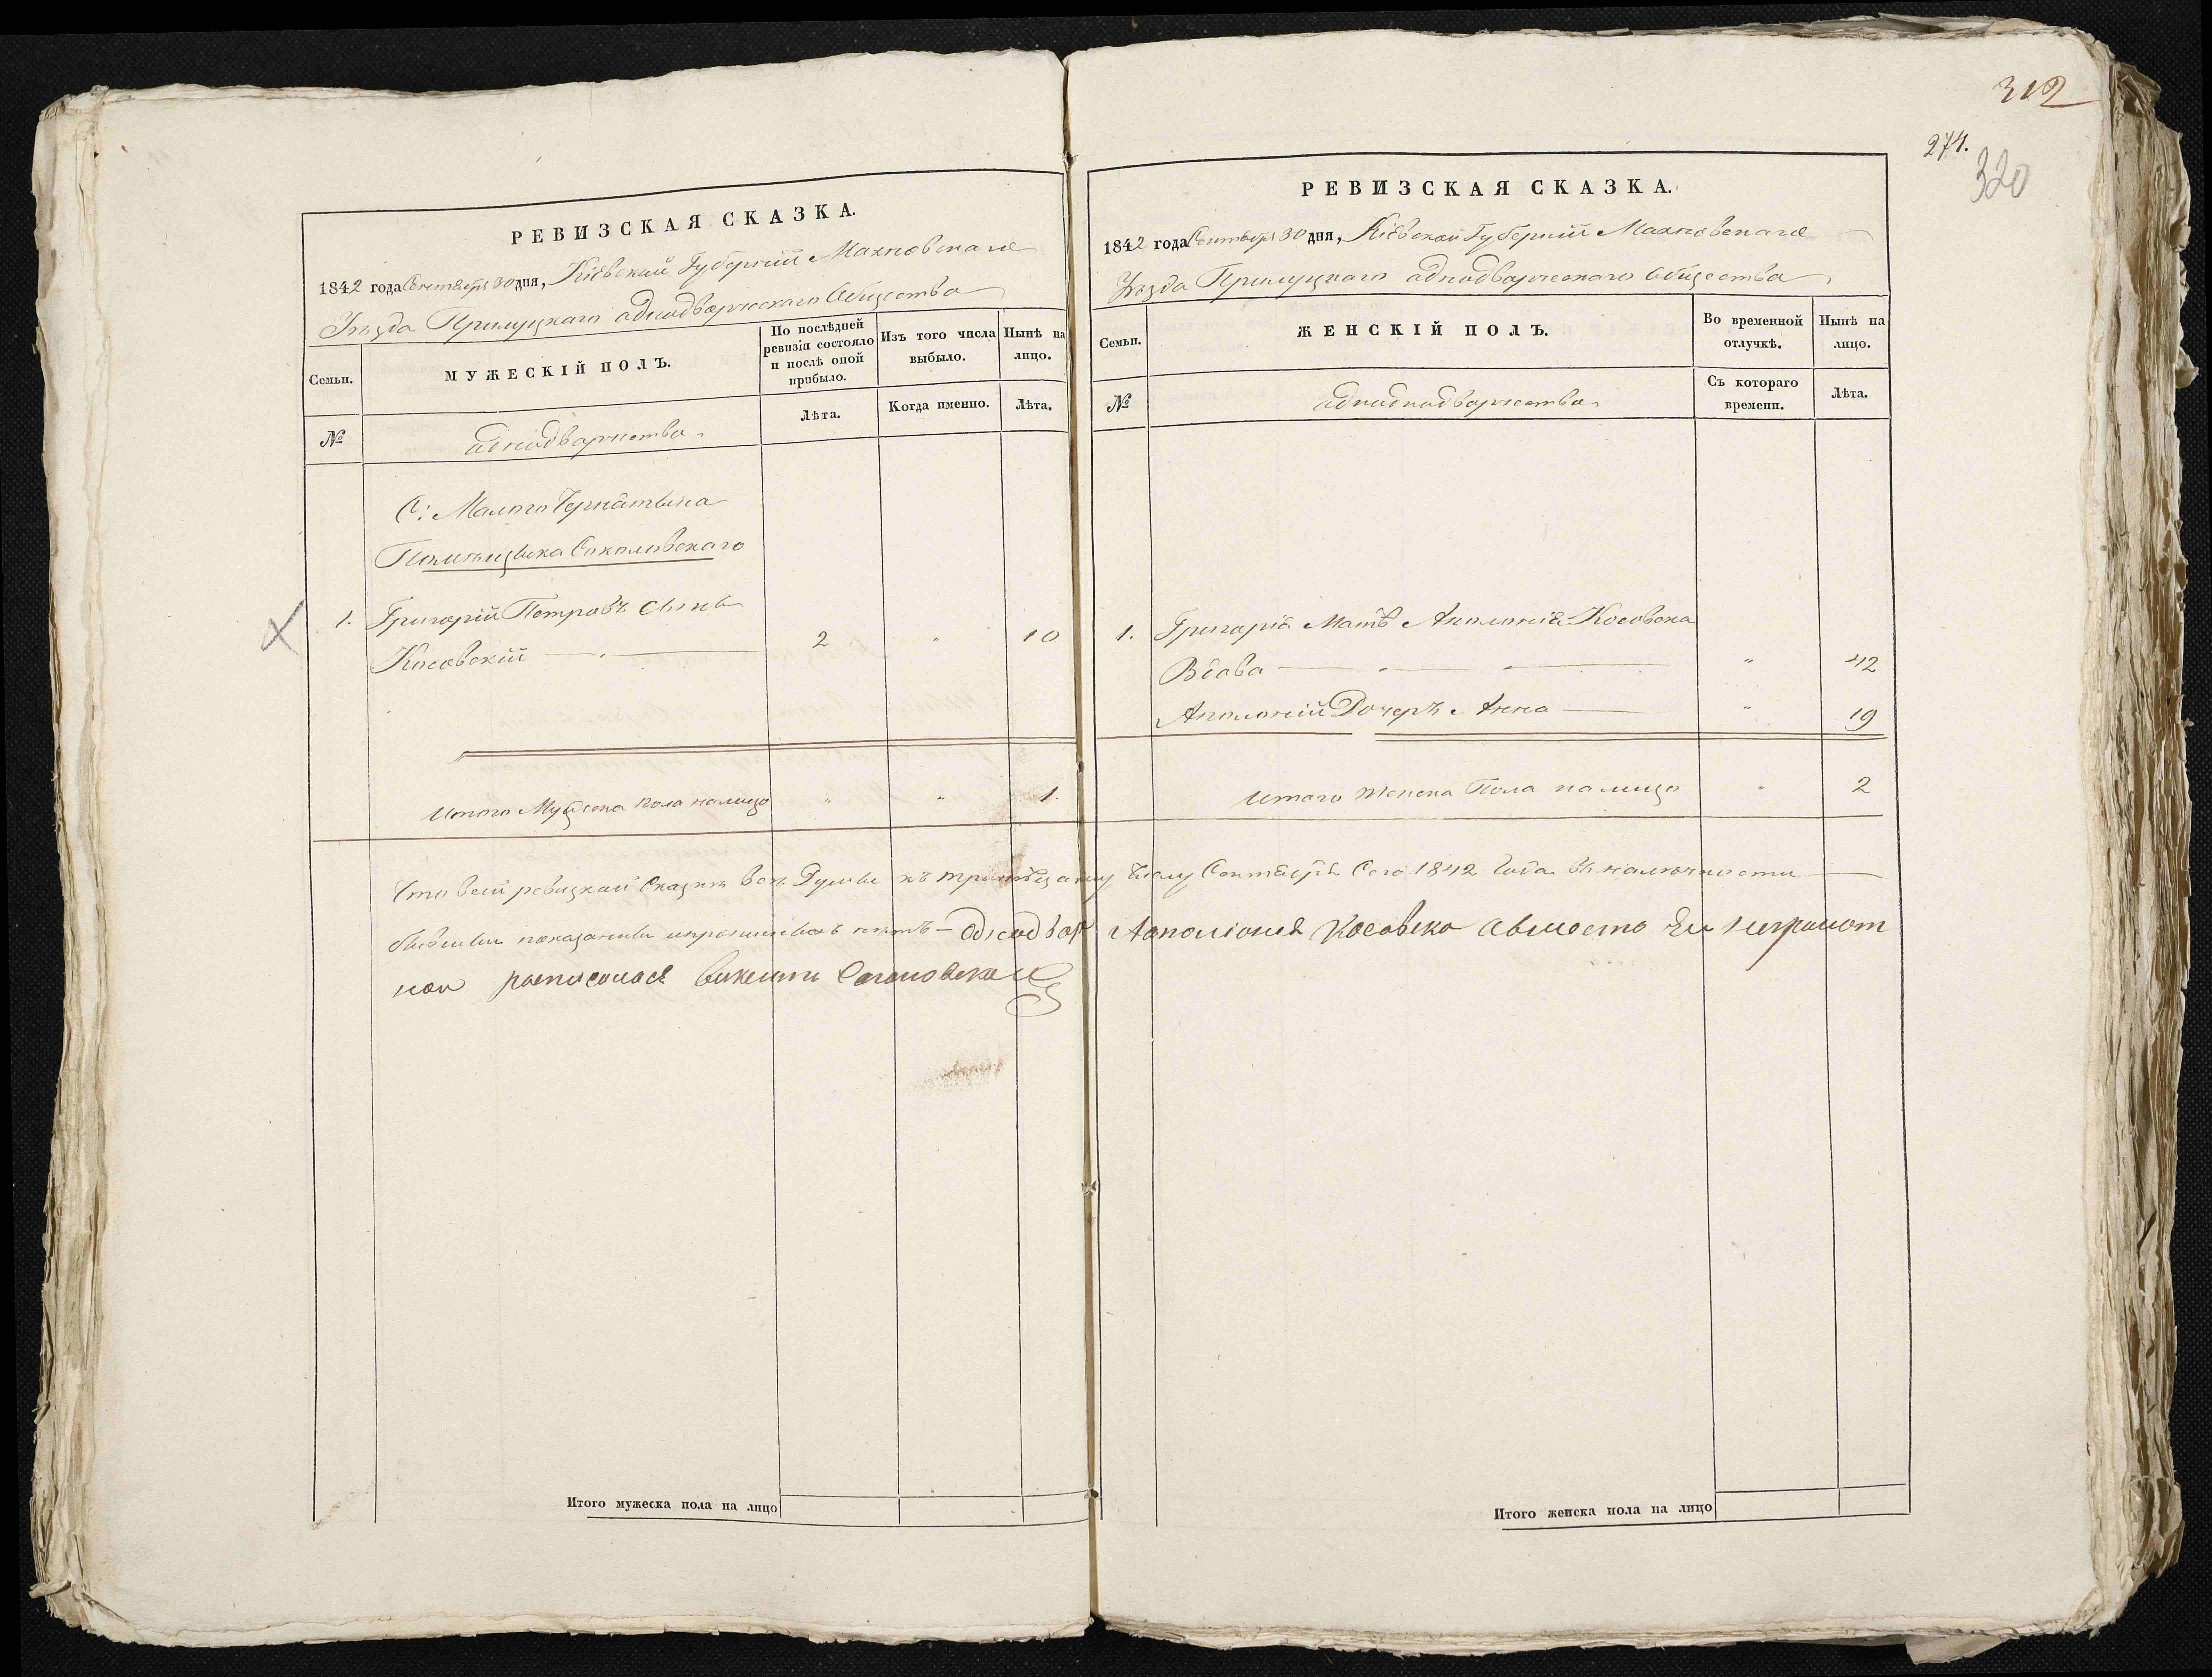 РЕВИЗСКАЯ СКАЗКА.
1842 года Сентября 30 дня, Кіевской Губерніи Махновскаго
Уѣзда Прилуцкаго аднодворческаго Общества
Семьи.
МУЖЕСКІЙ ПОЛЪ.
По послѣдней ревизіи состояло и послѣ оной прибыло.
Изъ того числа выбыло.
Нынѣ на лицо.
№
аднодворчества
Лѣта.
Когда именно.
Лѣта.
С: Малого Чернятына
Помѣщыка Соколовскаго
1. Григорій Петровъ Сынъ
Косовскій 2 " 10
Итого Мужеска пола налицо " " 1.
312
274.
320
РЕВИЗСКАЯ СКАЗКА.
1842 года Сентября 30 дня, Кіевской Губерніи Махновскаго
Уѣзда Прилуцкаго аднодворческаго Общества
Семьи.
ЖЕНСКІЙ ПОЛЪ.
Во временной отлучкѣ.
Нынѣ на лицо.
№
аднаднодворчества
Съ котораго времени.
Лѣта.
1. Григорія Мать Аполонія Косовска
Вдова " 42
Аполоніи Дочеръ Анна " 19
Итого Женска Пола налицо " 2
Что всей ревизкой Сказкѣ всѣ Души къ тритцатому Числу Сентября Сего 1842 Года въ наличности
бывшыи показаны ипрописныхъ нѣтъ — Однодвор Апполіонія Косовска авместо Еи неграмот
нои росписался викенти
Итого мужеска пола на лицо
Итого женска пола на лицо